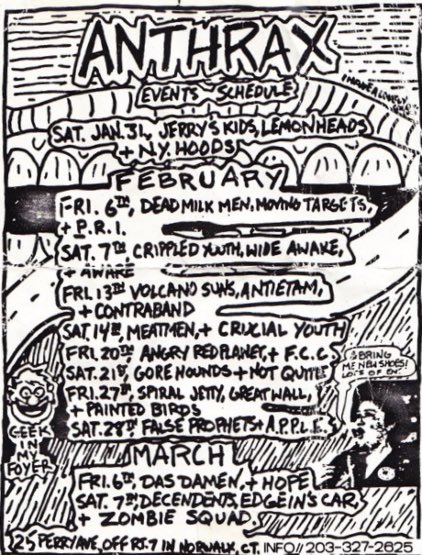 ANTHRAX
EVENTS SCHEDULE
SAT. JAN. 31, JERRY'S KIDS, LEMONHEADS
+ N.Y. HOODS
FEBRUARY
FRI. 6TH, DEAD MILK MEN, MOVING TARGETS,
+ P.R.I.
SAT. 7TH, CRIPPLED YOUTH, WIDE AWAKE,
+ AWARE
FRI. 13TH VOLCANO SUNS, ANTIETAM,
+ CONTRABAND
SAT. 14TH, MEATMEN, + CRUCIAL YOUTH
FRI. 20TH ANGRY RED PLANET, + F.C.C.
SAT. 21ST, GORE HOUNDS + NOT QUITE
FRI. 27TH, SPIRAL JETTY, GREAT WALL,
+ PAINTED BIRDS
SAT. 28TH FALSE PROPHETS + A.P.P.L.E.
BRING
ME NEW SHOES!
LOTS OF EM
GEEK
IN
MY
FOYER
MARCH
FRI. 6TH, DAS DAMEN, + HOPE
SAT. 7TH, DECENDENTS, EDGE IN'S CAR,
+ ZOMBIE SQUAD
25 PERRY AVE, OFF RT. 7 IN NORWALK, CT. INFO// 203-327-2625